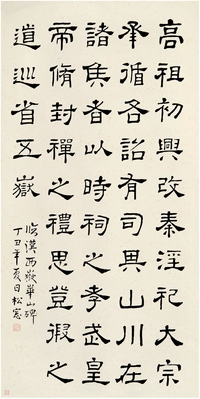 高祖初興改秦淫祀大宗
承循各詔有司其山川在
諸矦者以時祠之孝武皇
帝脩封禪之禮思登徦之
道巡省五嶽
臨漢西嶽華山碑
丁丑年夏日松窓